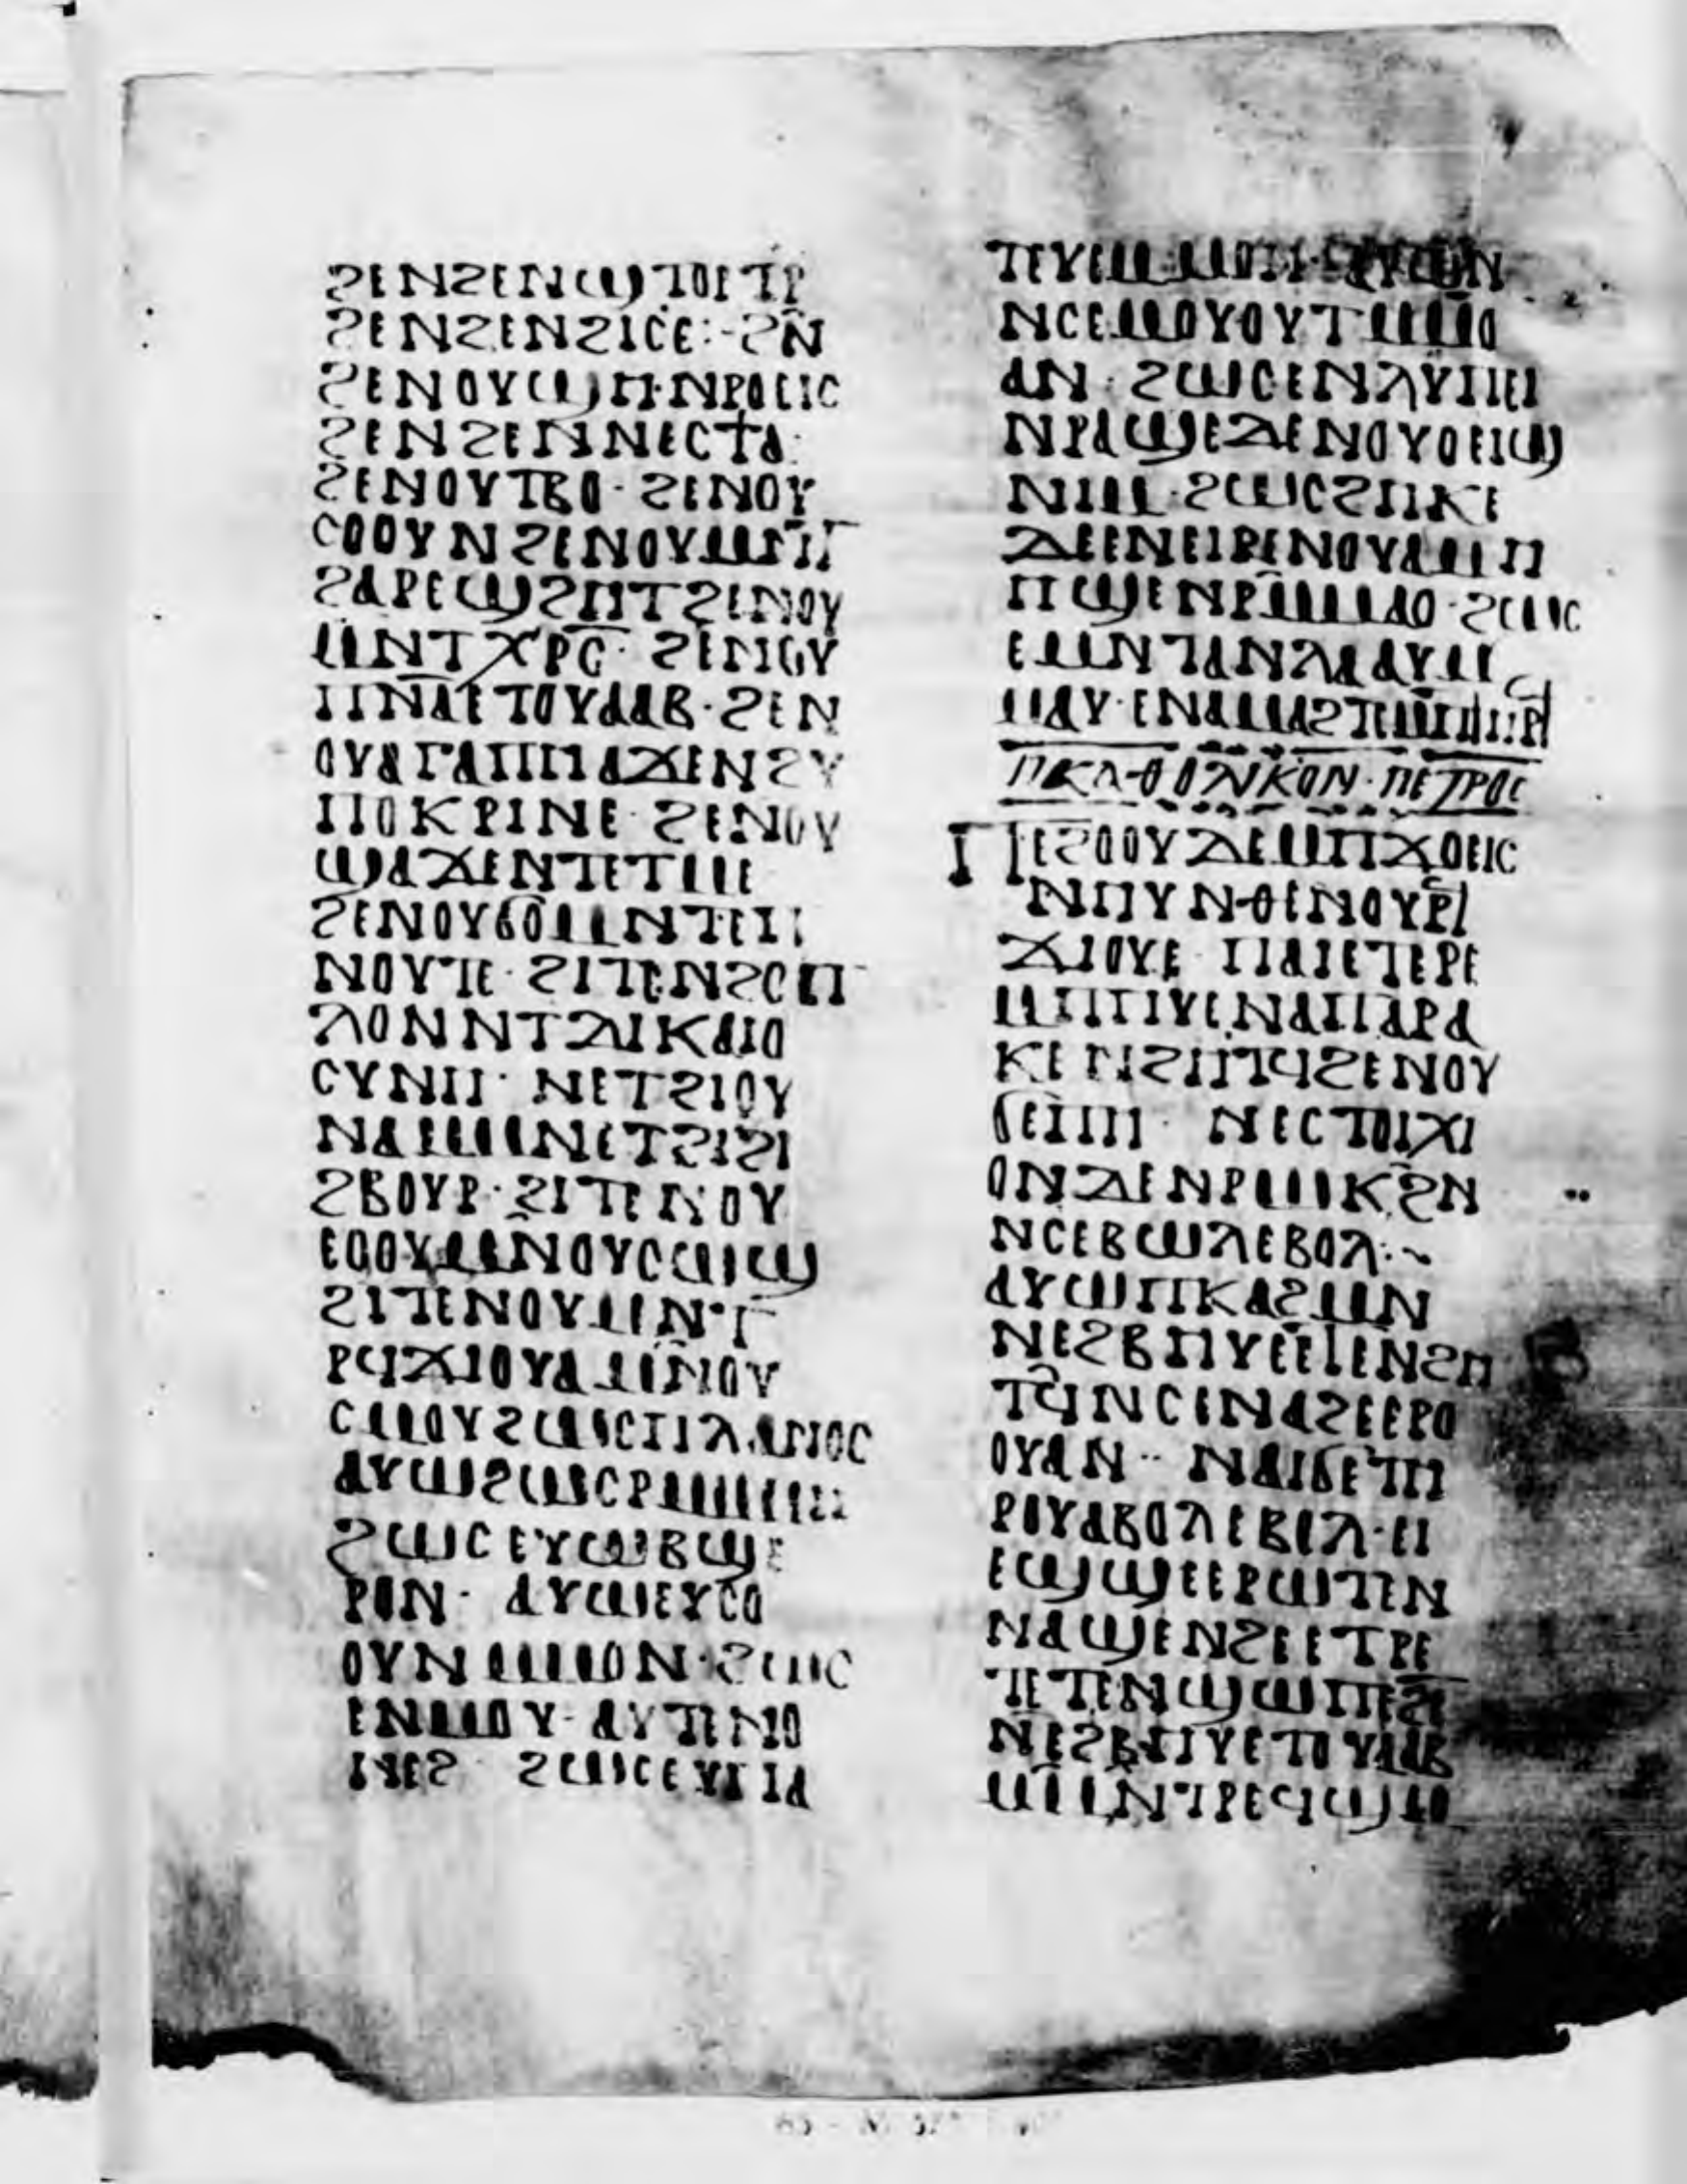 ϩⲉⲛϩⲉⲛϣⲧⲟⲣⲧⲣ
ϩⲉⲛϩⲉⲛϩⲓⲥⲉ:-ϩⲛ̄
ϩⲉⲛⲟⲩϣⲏ·ⲛⲣⲟⲉⲓⲥ
ϩⲉⲛϩⲉⲛⲛⲉⲥϯⲁ·
ϩⲉⲛⲟⲩⲧⲃⲟ· ϩⲉⲛⲟⲩ
ⲥⲟⲟⲩⲛϩⲉⲛⲟⲩⲙⲛ̄ⲧ
ϩⲁⲣⲉϣϩⲏⲧϩⲉⲛⲟⲩ
ⲙⲛⲧⲭⲣ̅ⲥ̅· ϩⲉⲛⲟⲩ
ⲡⲛⲁⲉⲧⲟⲩⲁⲁⲃ· ϩⲉⲛ
ⲟⲩⲁⲅⲁⲡⲏⲙⲁϫⲉⲛϩⲩ
ⲡⲟⲕⲣⲓⲛⲉ· ϩⲉⲛⲟⲩ
ϣⲁϫⲉⲛⲧⲉⲧⲙⲉ
ϩⲉⲛⲟⲩϭⲟⲙⲛⲧⲉⲡ
ⲛⲟⲩⲧⲉ· ϩⲓⲧⲉⲛϩⲟⲡ
ⲗⲟⲛⲛⲧⲇⲓⲕⲁⲓⲟ
ⲥⲩⲛⲏ· ⲛⲉⲧϩⲓⲟⲩ
ⲛⲁⲙⲙⲛⲉⲧϩⲓϩⲓ
ϩⲃⲟⲩⲣ· ϩⲓⲧⲉⲛⲟⲩ
ⲉⲟⲟⲩⲙⲛ̄ⲟⲩⲥⲱϣ
ϩⲓⲧⲉⲛⲟⲩⲙⲛⲧ
ⲣϥϫⲓⲟⲩⲁⲙⲛ̄ⲟⲩ
ⲥⲙⲟⲩϩⲱⲥⲡⲗⲁⲛⲟⲥ
ⲁⲩⲱϩⲱⲥⲣⲙⲙⲙⲉ
ϩⲱⲥⲉⲩⲱⲃϣⲉ
ⲣⲟⲛ· ⲁⲩⲱⲉⲩⲥⲟ
ⲟⲩⲛⲙⲙⲟⲛ· ϩⲱⲥ
ⲉⲛⲙⲟⲩ· ⲁⲩⲧⲉⲛⲟ
ⲛⲉϩ· ϩⲱⲥⲉⲩⲡⲁ
ⲛⲥⲉⲙⲟⲩⲟⲩⲧⲙⲙⲟ
ⲁⲛ· ϩⲱⲥⲉⲛⲗⲩⲡⲉⲓ
ⲛⲣⲁϣⲉⲇⲉⲛⲟⲩⲟⲉⲓϣ
ⲛⲓⲙ· ϩⲱⲥϩⲏⲕⲉ
ⲇⲉⲉⲛⲉⲓⲣⲉⲛⲟⲩⲁⲙⲏ
ⲏϣⲉⲛⲣⲙ̄ⲙⲁⲟ· ϩⲱⲥ
ⲉⲙⲛⲧⲁⲛⲗⲁⲁⲩⲙ
ⲙⲁⲩ· ⲉⲛⲁⲙⲁϩⲧⲉ
ⲡⲕⲁⲑⲟⲗⲓⲕⲟⲛ· ⲡⲉⲧⲣⲟⲥ
ⲡⲉϩⲟⲟⲩⲇⲉⲙⲡϫⲟⲉⲓⲥ
ⲛⲏⲩⲛⲑⲉⲛⲟⲩⲣⲉϥ
ϫⲓⲟⲩⲉ· ⲡⲁⲓⲉⲧⲉⲣⲉ
ⲙⲡⲏⲩⲉⲛⲁⲡⲁⲣⲁ
ⲕⲉⲛϩⲏⲧϥϩⲉⲛⲟⲩ
ϭⲉⲡⲏ· ⲛⲉⲥⲧⲟⲓⲭⲓ
ⲟⲛⲇⲉⲛⲣⲱⲕϩ̄ⲛ
ⲛⲥⲉⲃⲱⲗⲉⲃⲟⲗ:~
ⲁⲩⲱⲡⲕⲁϩⲙⲛ
ⲛⲉϩⲃⲏⲩⲉⲉⲧⲉⲛϩⲏ
ⲧϥⲛⲥⲉⲛⲁϩⲉⲉⲣⲟ
ⲟⲩⲁⲛ·· ⲛⲁⲓϭⲉⲧⲏ
ⲣⲟⲩⲁⲃⲟⲗⲉⲃⲟⲗ· ⲉⲓ
ⲉϣϣⲉⲉⲣⲱⲧⲉⲛ
ⲛⲁϣⲉⲛϩⲉⲉⲧⲣⲉ
ⲧⲉⲧⲉⲛϣⲱⲡⲉϩⲛ̄
ⲛⲉϩⲃⲏⲩⲉⲧⲟⲩⲁⲁⲃ
ⲙⲙⲛⲧⲣⲉϥϣⲙ